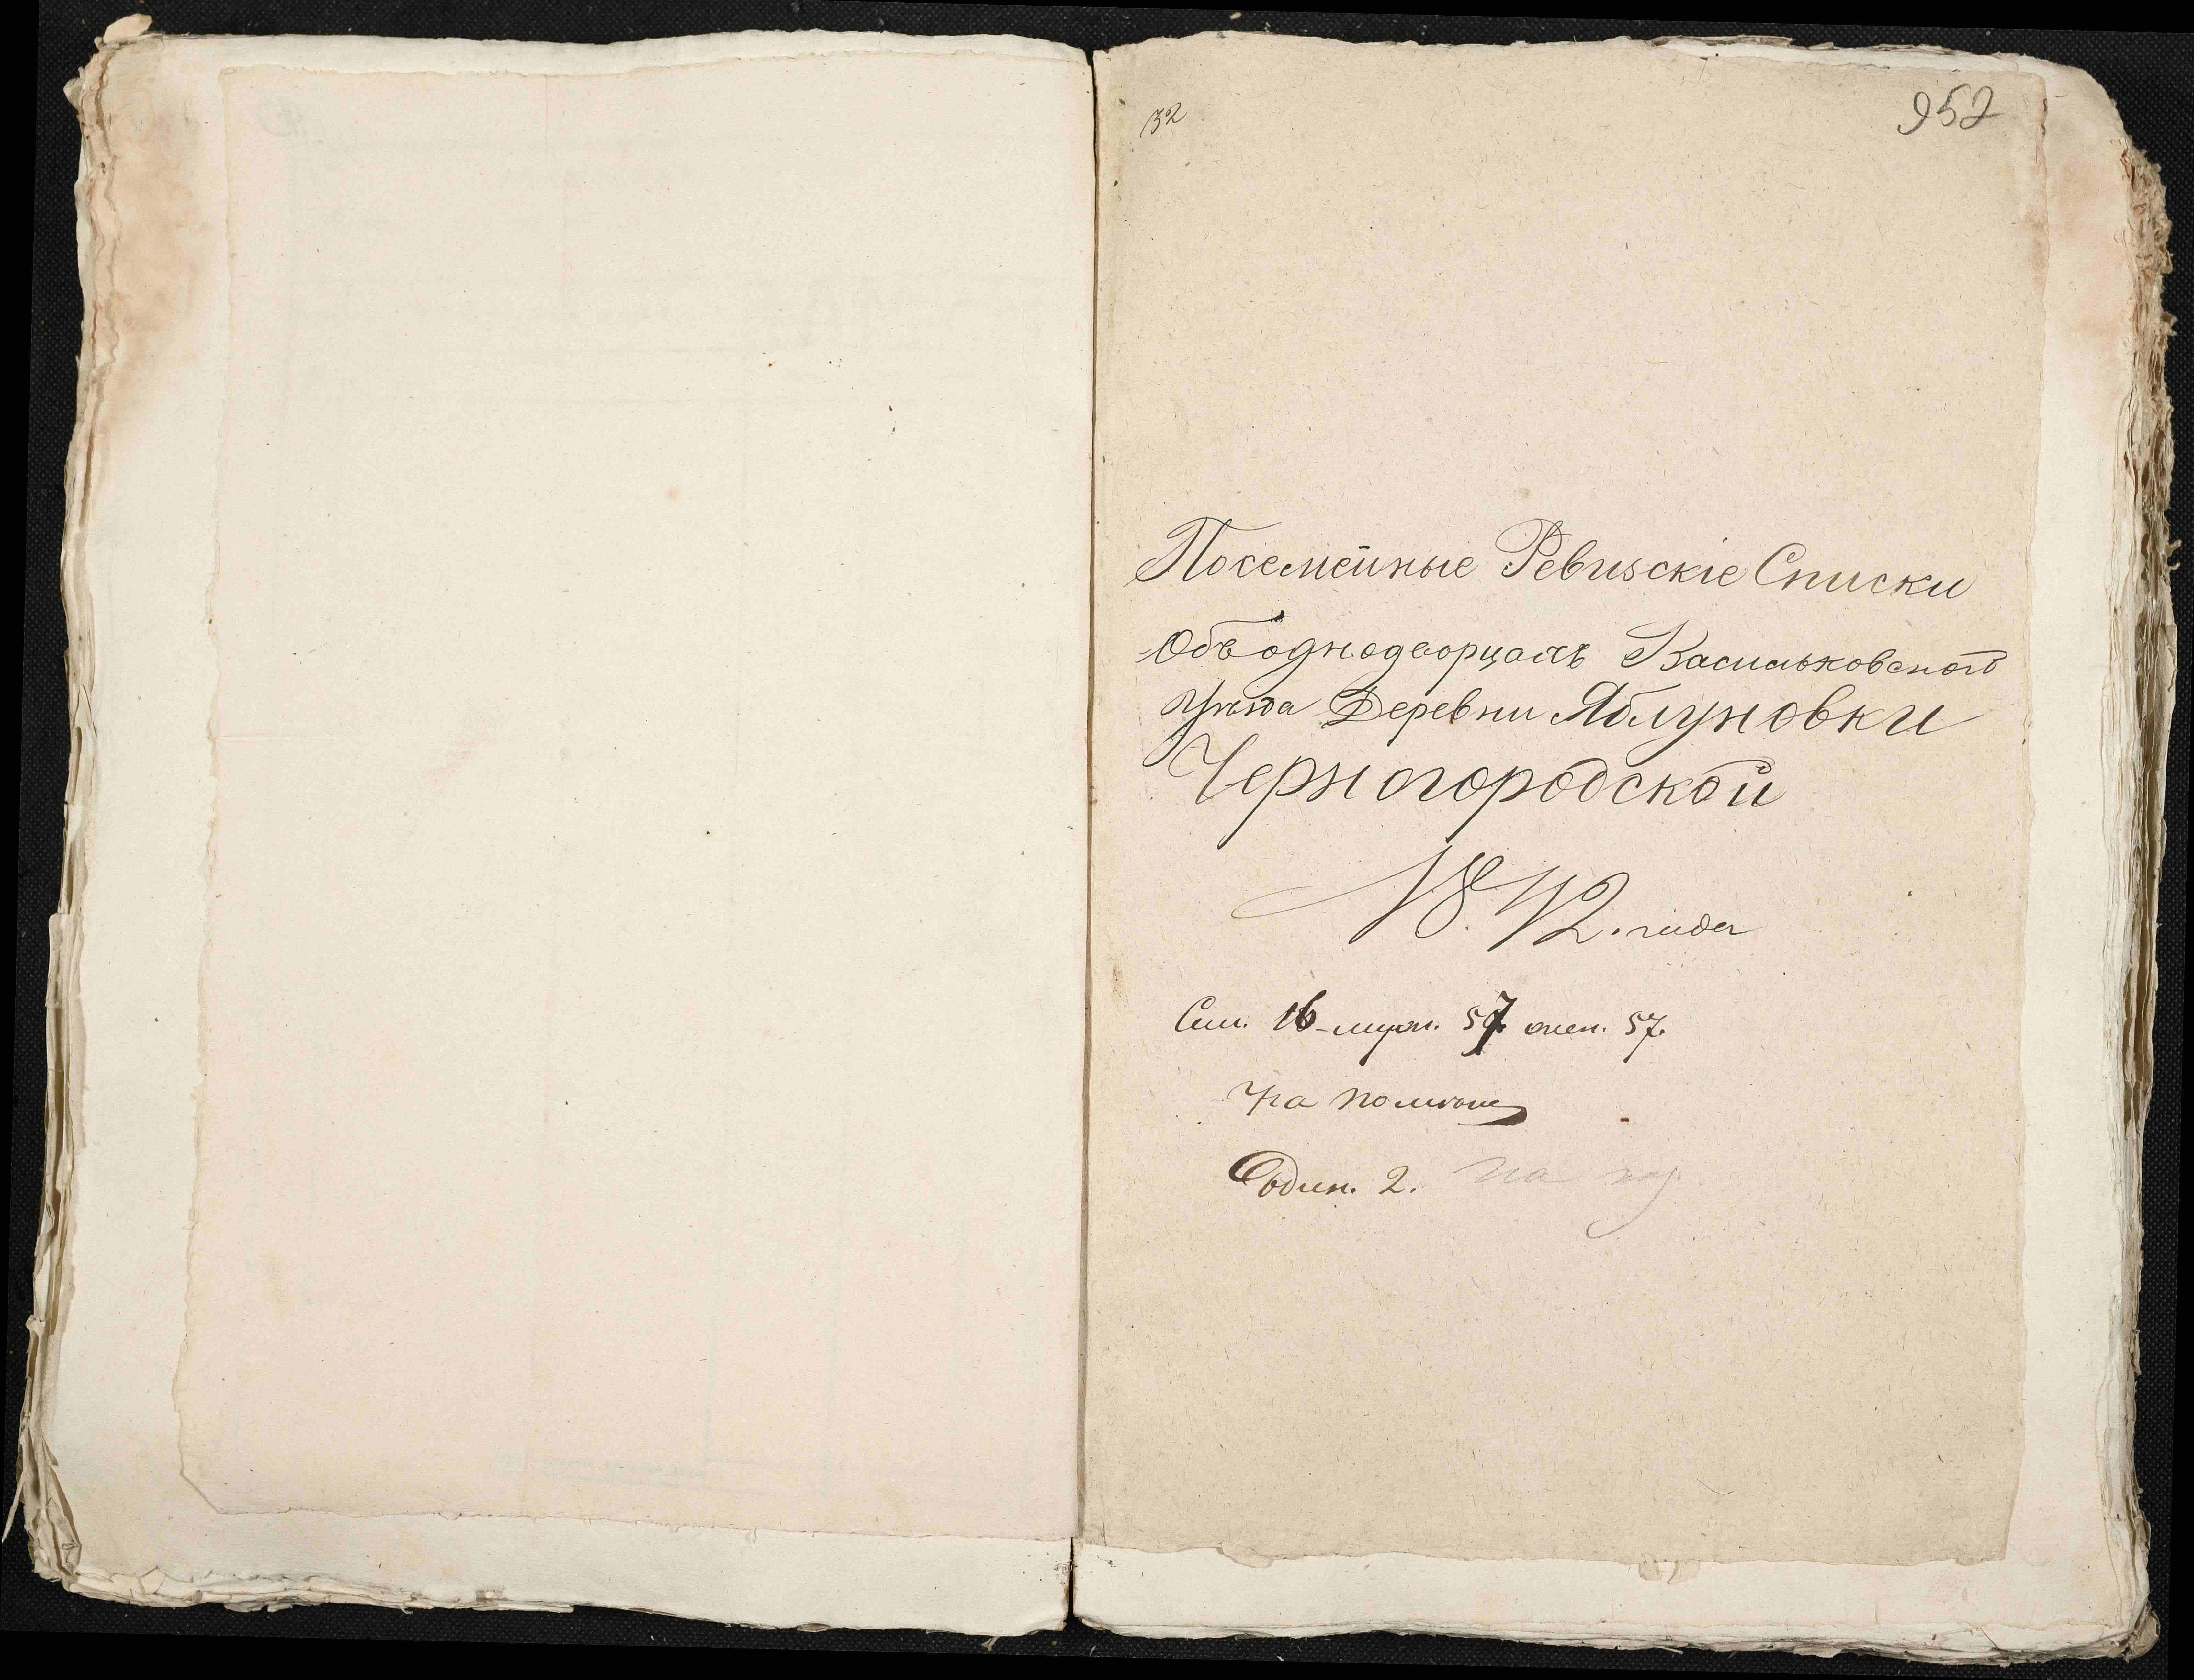 32
952
Посемейные Ревизскіе Списки
Объ однодворцахъ Васильковского
Уезда Деревни Яблуновки
Черногородской
1842. года
Сем. 16 муж. 57 жен. 57.
На
Один. 2. на